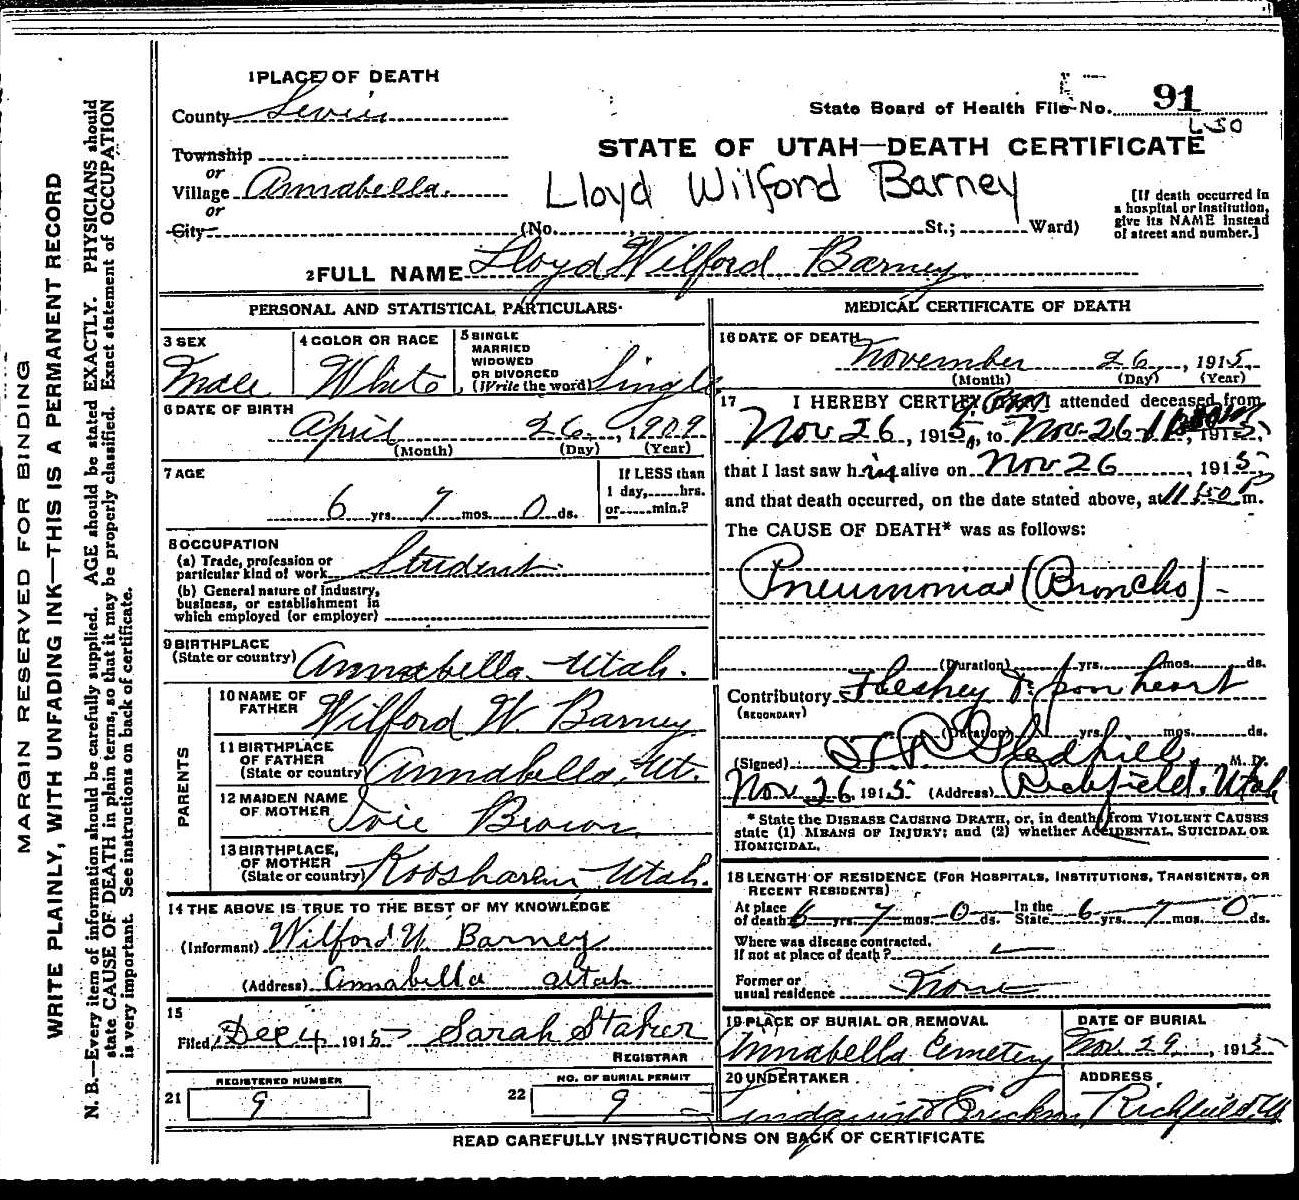 1 PLACE OF DEATH
County Sevier
Township
or
Village Annabella.
or
City
State Board of Health File No. 91
STATE OF UTAH—DEATH CERTIFICATE
Lloyd Wilford Barney
(No. , St.; Ward)
[If death occurred in
a hospital or institution,
give its NAME instead
of street and number.]
2 FULL NAME Lloyd Wilford Barney
PERSONAL AND STATISTICAL PARTICULARS
3 SEX
Male
4 COLOR OR RACE
White
5 SINGLE
MARRIED
WIDOWED
OR DIVORCED
(Write the word) Single
6 DATE OF BIRTH
April 26, 1909
(Month) (Day) (Year)
7 AGE
6 yrs. 7 mos. 0 ds.
If LESS than
1 day, hrs.
or min.?
8 OCCUPATION
(a) Trade, profession or
particular kind of work Student
(b) General nature of industry,
business, or establishment in
which employed (or employer)
9 BIRTHPLACE
(State or country) Annabella Utah.
PARENTS
10 NAME OF
FATHER Wilford W. Barney
11 BIRTHPLACE
OF FATHER
(State or country) Annabella, Ut.
12 MAIDEN NAME
OF MOTHER Ivie Brown
13 BIRTHPLACE,
OF MOTHER
(State or country) Koosharem, Utah.
14 THE ABOVE IS TRUE TO THE BEST OF MY KNOWLEDGE
(Informant) Wilford W. Barney
(Address) Annabella Utah
15
Filed, Dec 4 1915 Sarah Staker
REGISTRAR
REGISTERED NUMBER
21 9
NO. OF BURIAL PERMIT
22 9
MEDICAL CERTIFICATE OF DEATH
16 DATE OF DEATH
November 26, 1915
(Month) (Day) (Year)
17 I HEREBY CERTIFY, attended deceased from
Nov 26, 1915, to Nov 26, 1915,
that I last saw him alive on Nov 26, 1915
and that death occurred, on the date stated above, at 11:50 P m.
The CAUSE OF DEATH* was as follows:
Pneumonia (Broncho)
(Duration) yrs. mos. ds.
Contributory Fleshey & poor heart
(SECONDARY)
(Duration) yrs. mos. ds.
(Signed) Gledhill M. D.
Nov 26, 1915 (Address) Richfield, Utah
* State the DISEASE CAUSING DEATH, or, in deaths from VIOLENT CAUSES
state (1) MEANS OF INJURY; and (2) whether ACCIDENTAL, SUICIDAL OR
HOMICIDAL.
18 LENGTH OF RESIDENCE (FOR HOSPITALS, INSTITUTIONS, TRANSIENTS, OR
RECENT RESIDENTS)
At place
of death 6 yrs. 7 mos. 0 ds. In the
State 6 yrs. 7 mos. 0 ds.
Where was disease contracted,
If not at place of death?
Former or
usual residence None
19 PLACE OF BURIAL OR REMOVAL
Annabella Cemetery
DATE OF BURIAL
Nov 29, 1915
20 UNDERTAKER
Lindquist & Erickson
ADDRESS
Richfield, Ut
READ CAREFULLY INSTRUCTIONS ON BACK OF CERTIFICATE
MARGIN RESERVED FOR BINDING
WRITE PLAINLY, WITH UNFADING INK—THIS IS A PERMANENT RECORD
N. B.—Every item of information should be carefully supplied. AGE should be stated EXACTLY. PHYSICIANS should
state CAUSE OF DEATH in plain terms, so that it may be properly classified. Exact statement of OCCUPATION
is very important. See instructions on back of certificate.